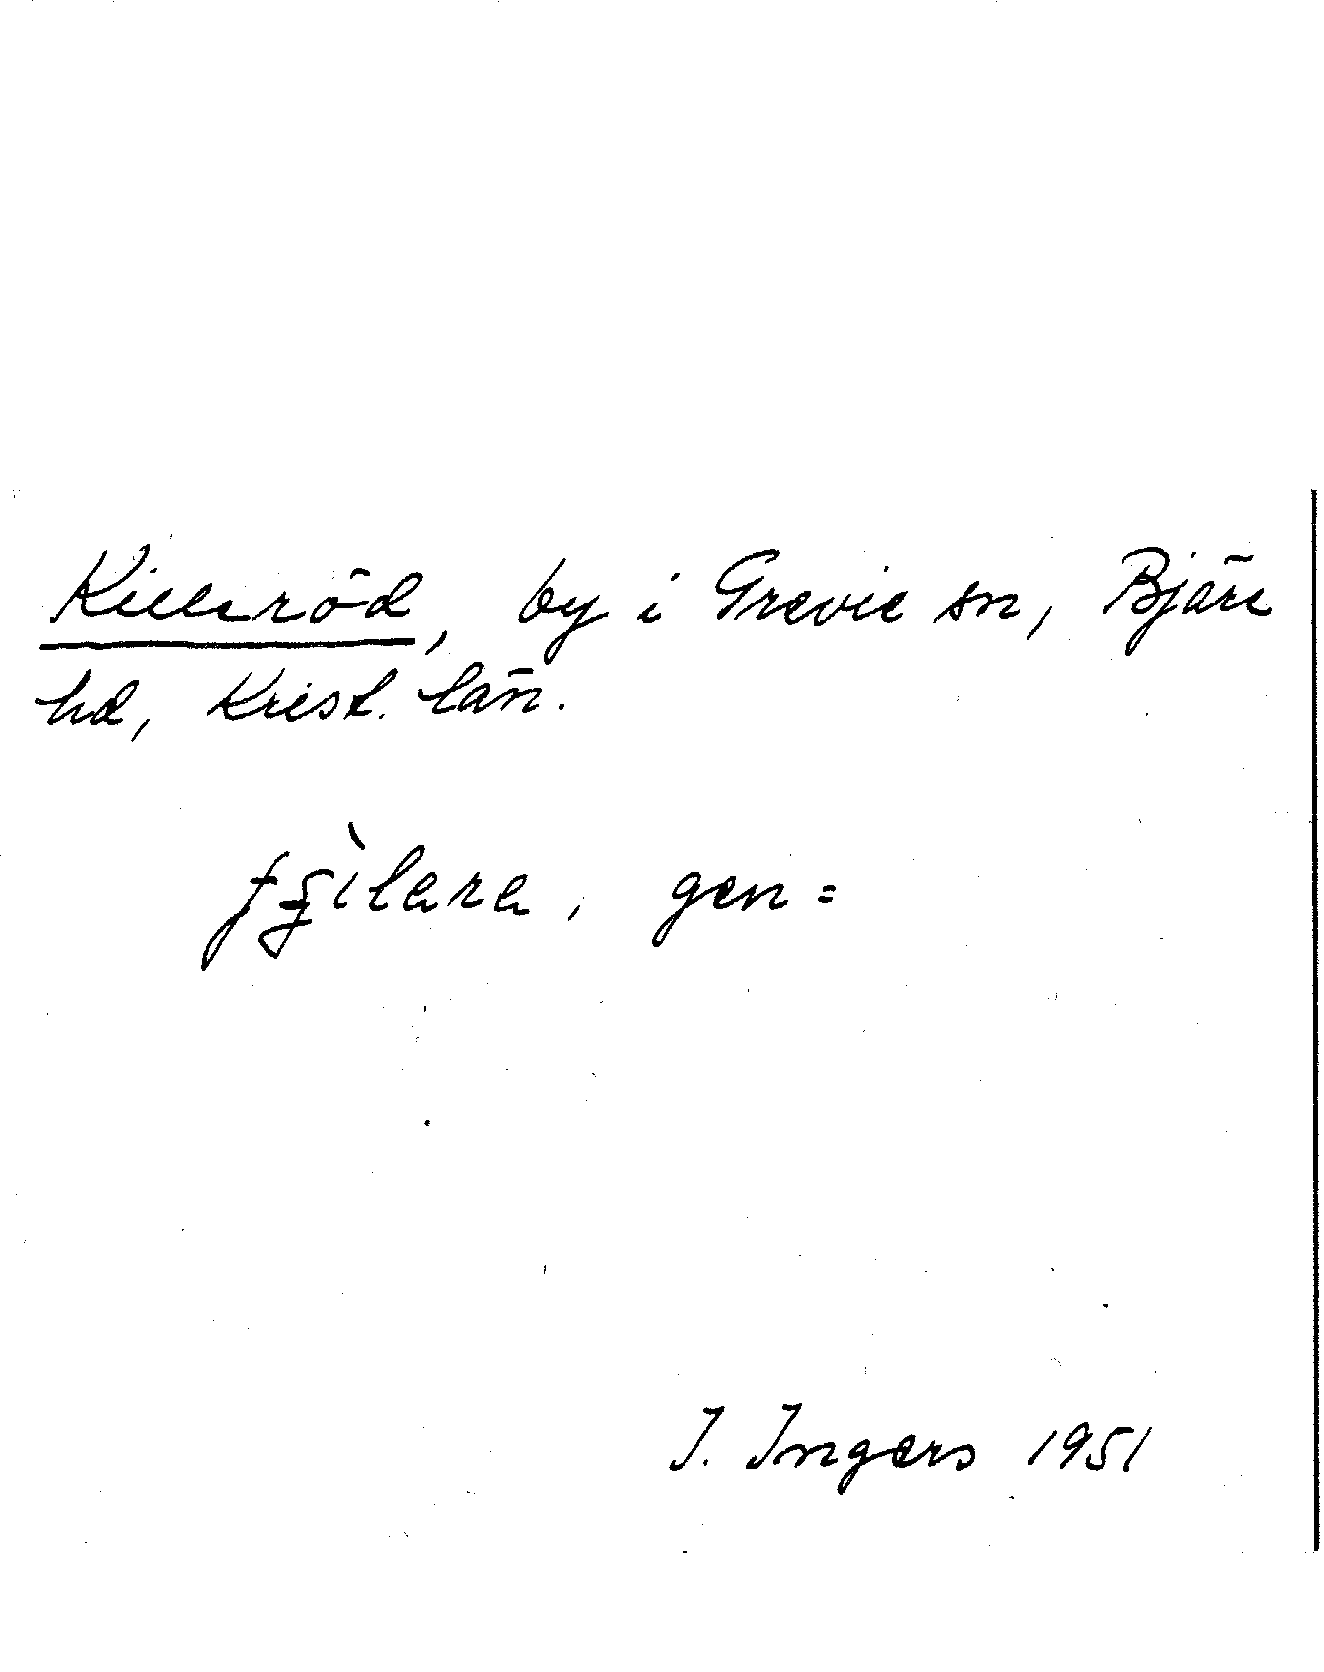 Killeröd, by i Grevie sn, Bjäre
hd, Krist. län.
gen =
I. Ingers 1951